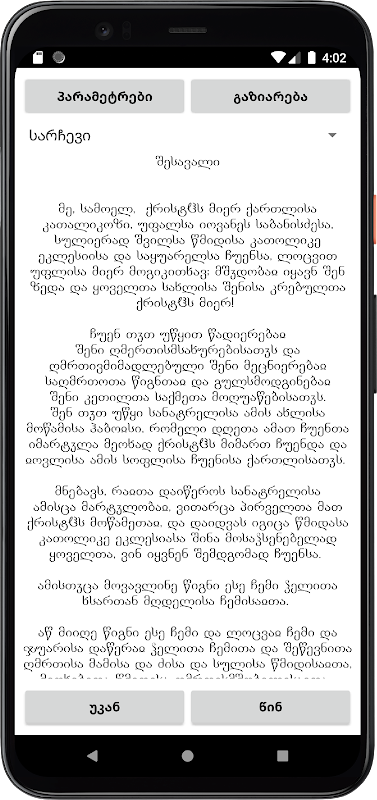 4:02
პარამეტრები გაზიარება
სარჩევი
შესავალი
მე, სამოელ, ქრისტჱს მიერ ქართლისა
კათალიკოზი, უფალსა იოვანეს საბანისძესა,
სულიერად შვილსა წმიდისა კათოლიკე
ეკლესიისა და საყუარელსა ჩუენსა, ლოცვით
უფლისა მიერ მოგიკითხავ: მშჳდობაჲ იყავნ შენ
ზედა და ყოველთა სახლისა შენისა კრებულთა
ქრისტჱს მიერ!
ჩუენ თჳთ უწყით წადიერებაჲ
შენი ღმერთისმსახურებისათჳს და
ღმრთივმიმადლებული შენი მეცნიერებაჲ
საღმრთოთა წიგნთაჲ და გულსმოდგინებაჲ
შენი კეთილთა საქმეთა მოღუაწებისათჳს.
შენ თჳთ უწყი სანატრელისა ამის ახლისა
მოწამისა ჰაბოჲსი, რომელი დღეთა ამათ ჩუენთა
იმარტჳლა მეოხად ქრისტჱს მიმართ ჩუენდა და
ჲოვლისა ამის სოფლისა ჩუენისა ქართლისათჳს.
მნებავს, რაჲთა დაიწეროს სანატრელისა
ამისცა მარტჳლობაჲ, ვითარცა პირველთა მათ
ქრისტჱს მოწამეთაჲ, და დაიდვას იგიცა წმიდასა
კათოლიკე ეკლესიასა შინა მოსაჴსენებელად
ყოველთა, ვინ იყვნენ შემდგომად ჩუენსა.
ამისთჳცა მოვავლინე წიგნი ესე ჩემი ჴელითა
ხსართან მღდელისა ჩემისაჲთა.
აწ მიიღე წიგნი ესე ჩემი და ლოცვაჲ ჩემი და
ჯუარისა დაწერაჲ ჴელითა ჩემითა და შეწევნითა
ღმრთისა მამისა და ძისა და სულისა წმიდისაჲთა,
უკან წინ